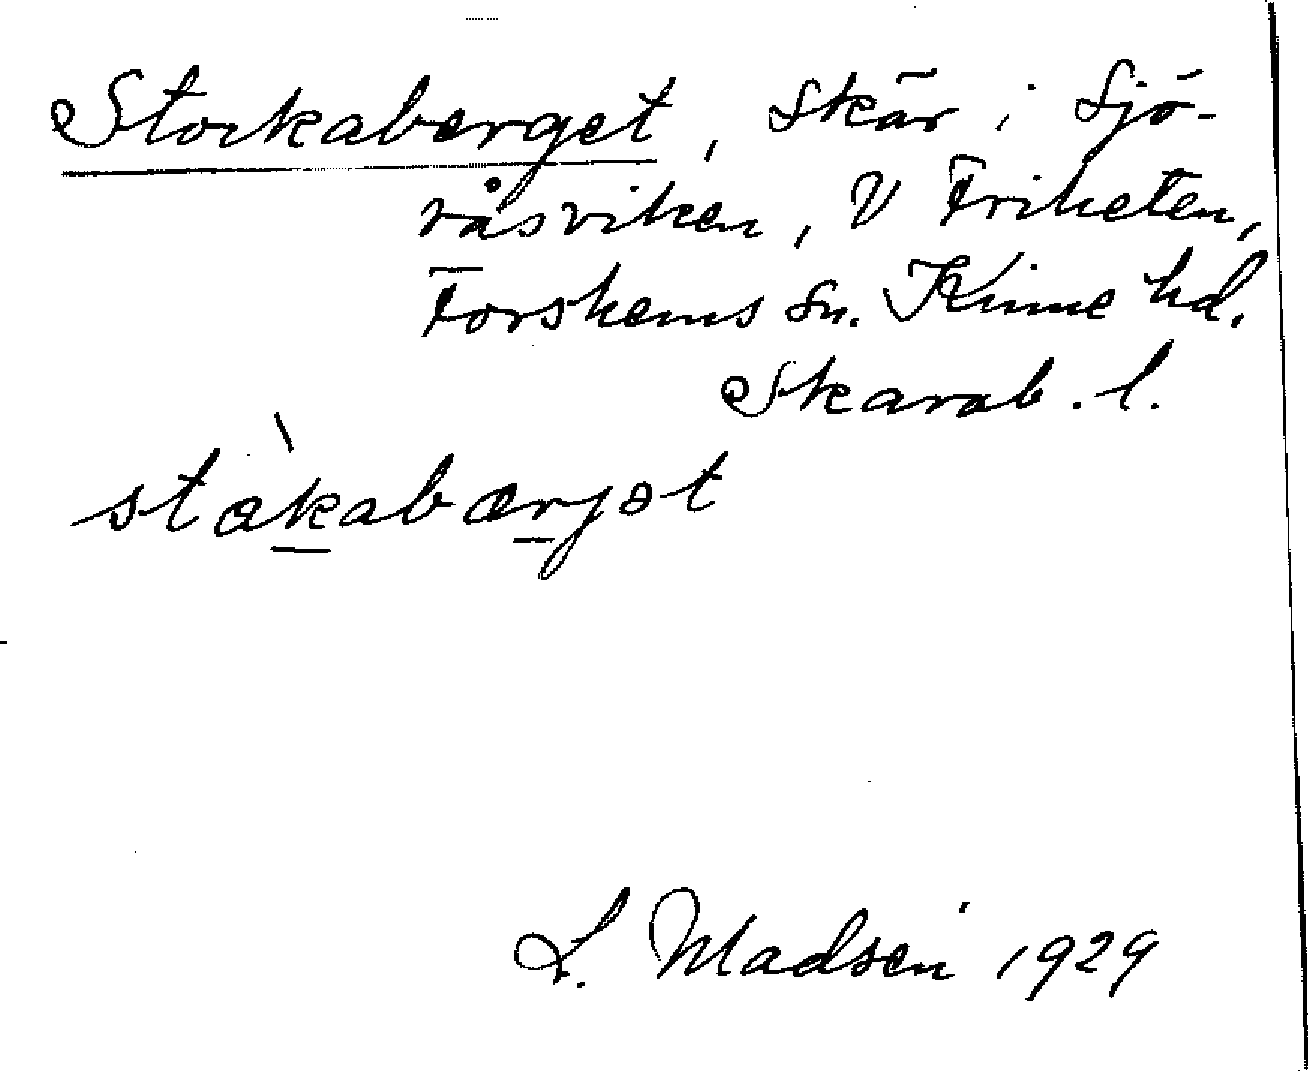 Stockaberget, skär i Sjö-
råsviken, V Friheten,
Forshems sn. Kinne hd.
Skarab. l.
stàkabærjət
L. Madsén 1929